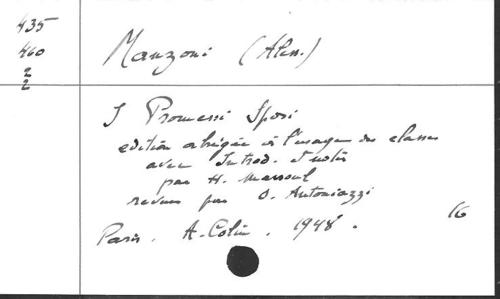 435
460
2
2
Manzoni (Aless.)
I Promessi Sposi
edition abrégée à l'usage des classes
avec Introd. et notes
par H. Massoul
revues par O. Antoniazzi
Paris. A. Colin. 1948.
16